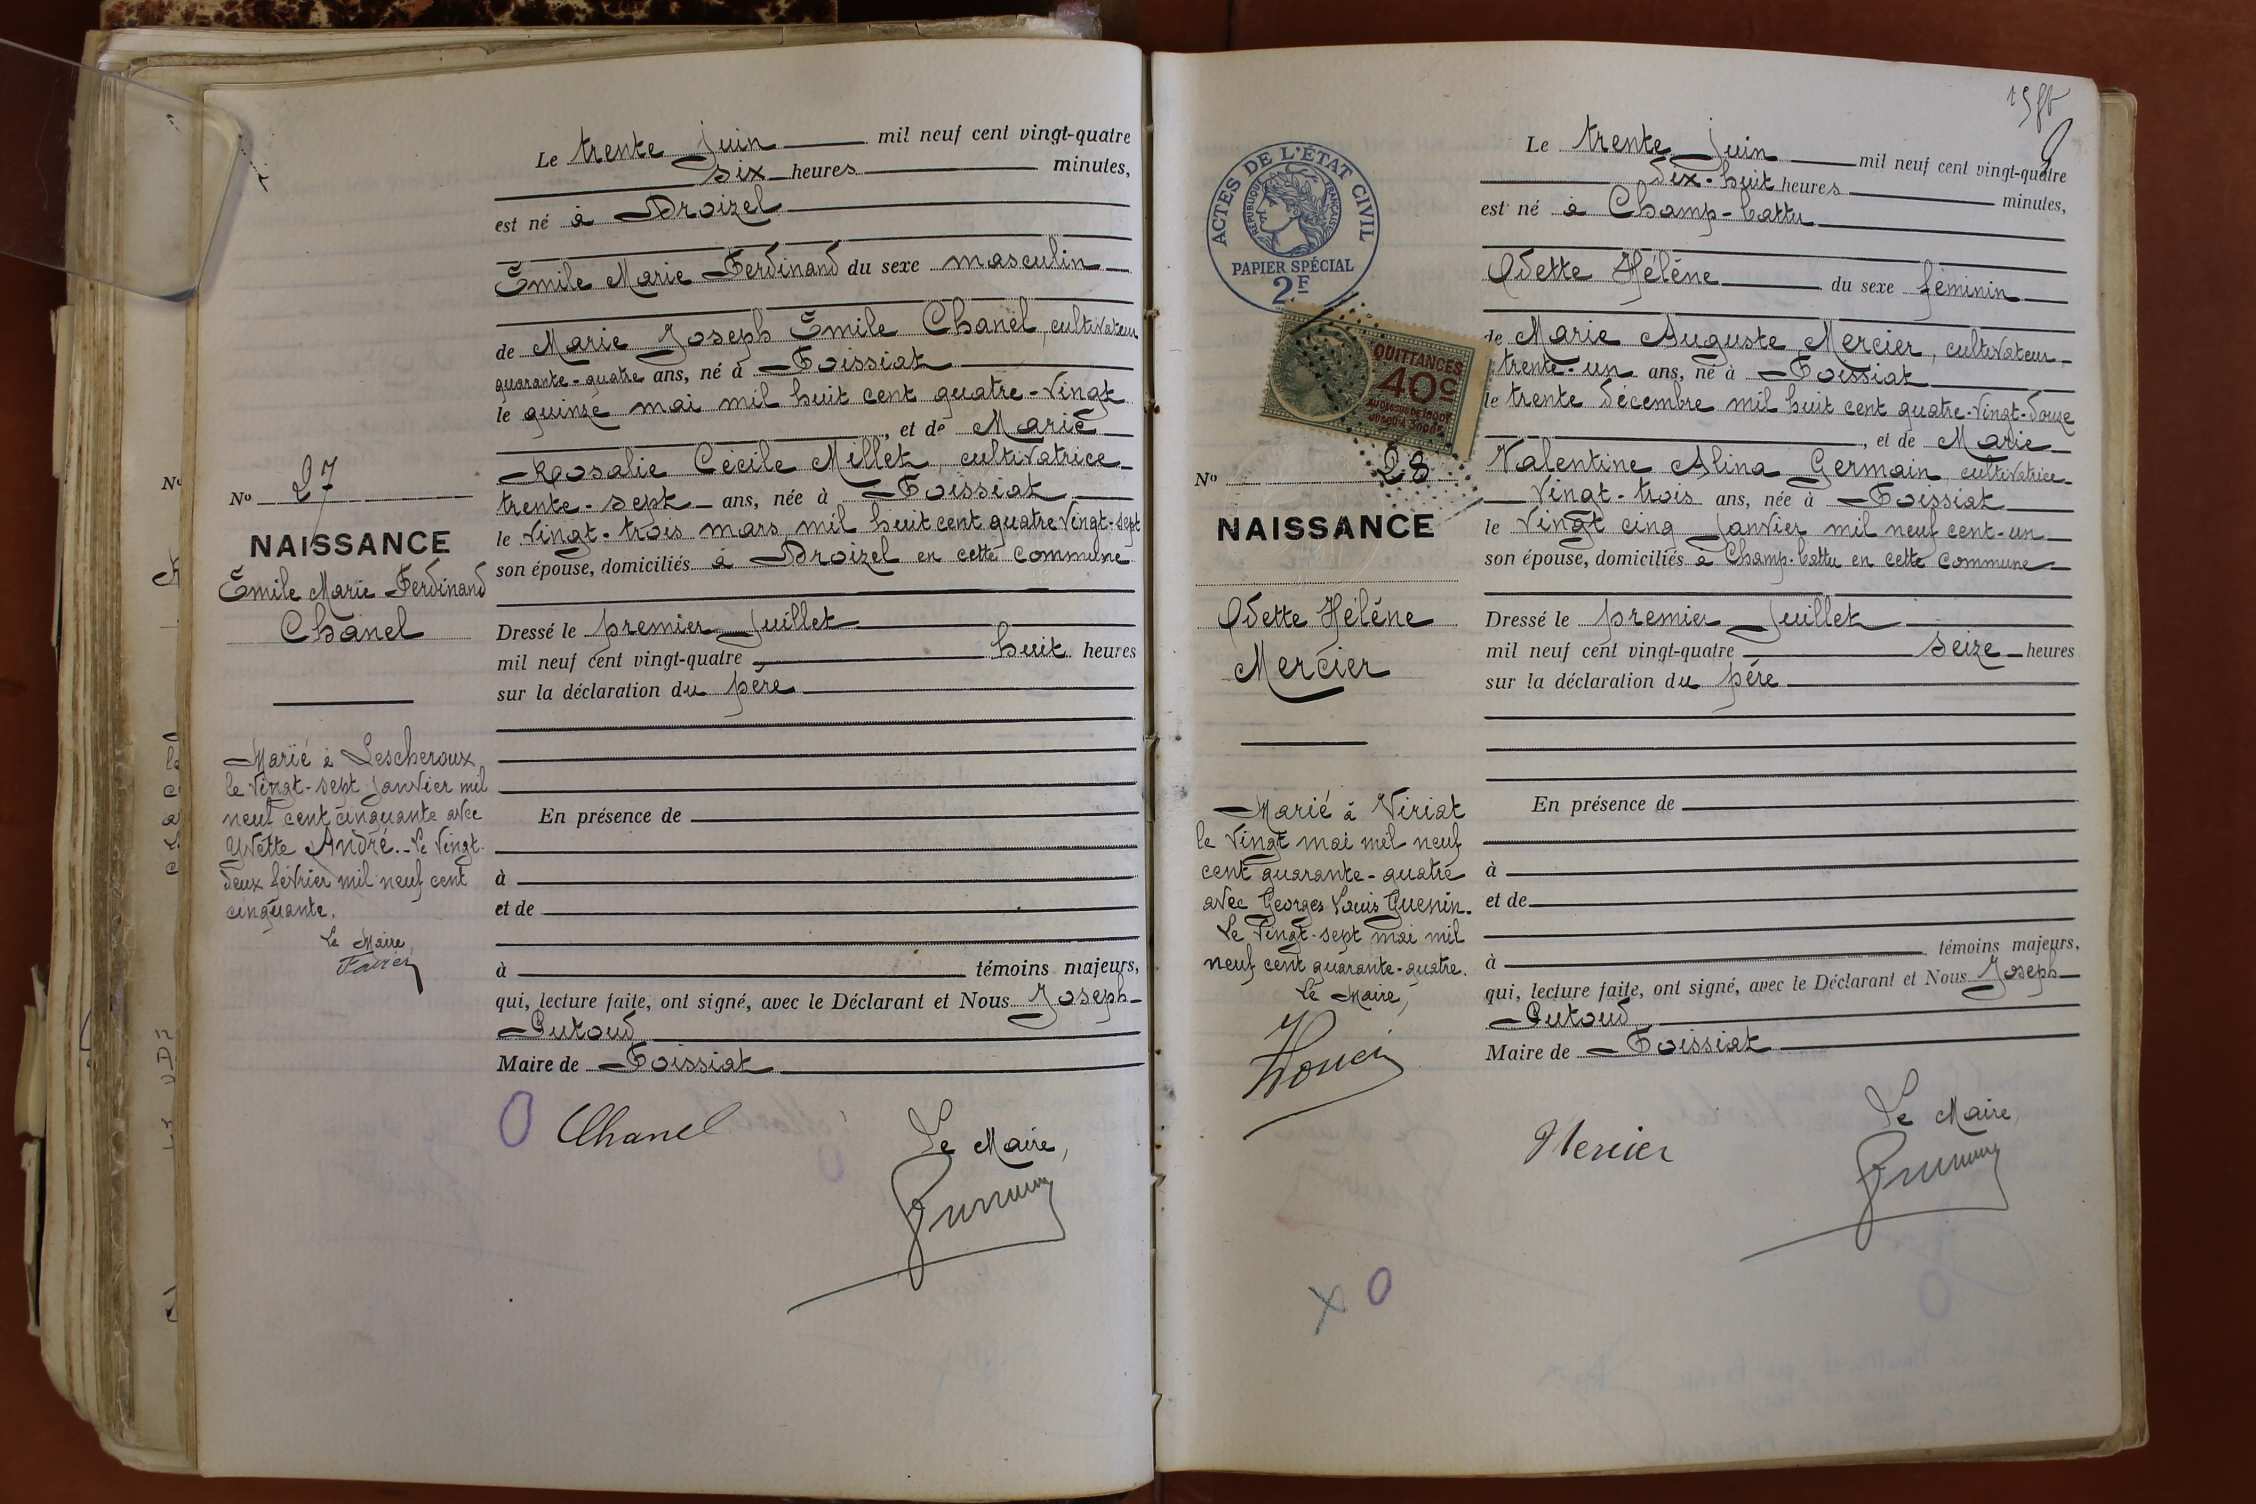 Le trente juin mil neuf cent vingt-quatre
six heures minutes,
est né à Droizel
Emile Marie Ferdinand du sexe masculin
de Marie Joseph Emile Chanel, cultivateur
quarante-quatre ans, né à Foissiat
le quinze mai mil huit cent quatre-vingt
, et de Marie
Rosalie Cécile Millet, cultivatrice
trente-sept ans, née à Foissiat
le vingt-trois mars mil huit cent quatre vingt-sept
son épouse, domiciliés à Droizel en cette commune
Dressé le premier juillet
mil neuf cent vingt-quatre huit heures
sur la déclaration du père
En présence de
à
et de
à témoins majeurs,
qui, lecture faite, ont signé, avec le Déclarant et Nous Joseph
Putoud
Maire de Foissiat
Chanel
Le Maire,
No 27
NAISSANCE
Emile Marie Ferdinand
Chanel
Marié à Lescheroux
le vingt-sept janvier mil
neuf cent cinquante avec
Yvette André. Le vingt-
deux février mil neuf cent
cinquante.
Le Maire,
ACTES DE L'ÉTAT CIVIL
RÉPUBLIQUE FRANÇAISE
PAPIER SPÉCIAL
2F
QUITTANCES
40c
AU DESSUS DE 1000F
JUSQU'A 3000F
No 28
NAISSANCE
Odette Hélène
Mercier
Marié à Viriat
le vingt mai mil neuf
cent quarante-quatre
avec Georges Louis Guenin.
Le vingt-sept mai mil
neuf cent quarante-quatre.
Le Maire,
Le trente juin mil neuf cent vingt-quatre
dix-huit heures minutes,
est né à Champ-battu
Odette Hélène du sexe féminin
de Marie Auguste Mercier, cultivateur
trente-un ans, né à Foissiat
le trente décembre mil huit cent quatre-vingt-douze
, et de Marie
Valentine Alina Germain, cultivatrice
vingt-trois ans, née à Foissiat
le vingt cinq janvier mil neuf cent-un
son épouse, domiciliés à Champ-battu en cette commune
Dressé le premier juillet
mil neuf cent vingt-quatre seize heures
sur la déclaration du père
En présence de
à
et de
à témoins majeurs,
qui, lecture faite, ont signé, avec le Déclarant et Nous Joseph
Putoud
Maire de Foissiat
Mercier
Le Maire,